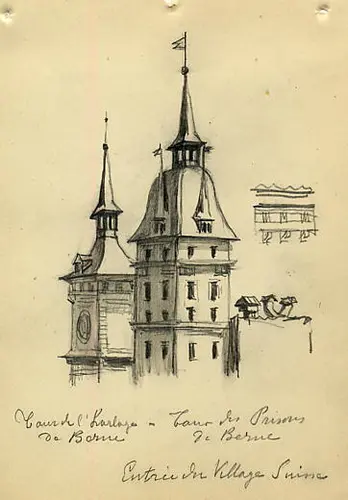 Tour de l'horloge - Tour des Prisons
de Berne de Berne
Entrée du Village Suisse